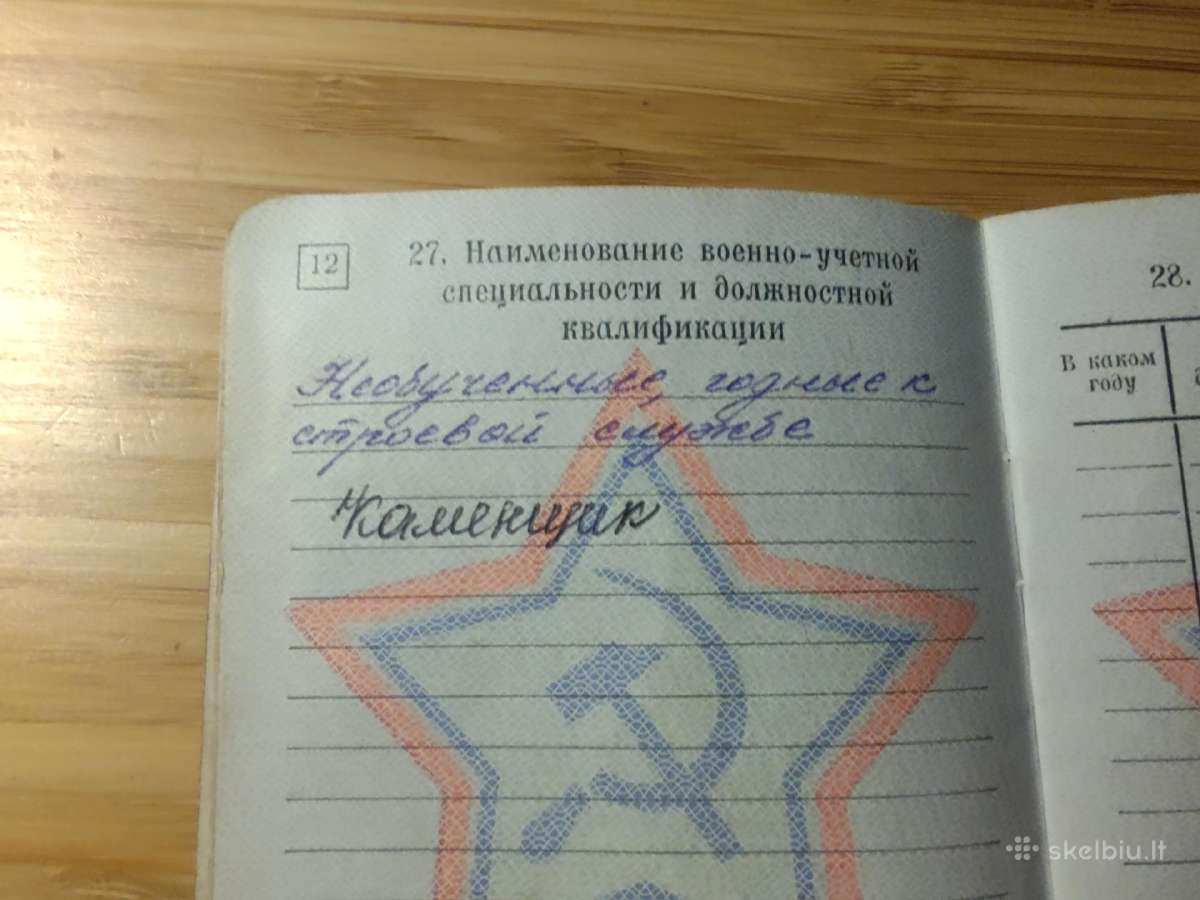 12
27. Наименование военно-учетной
специальности и должностной
квалификации
Необученные, годные к
строевой службе
Каменщик
28.
В каком
году
skelbiu.lt